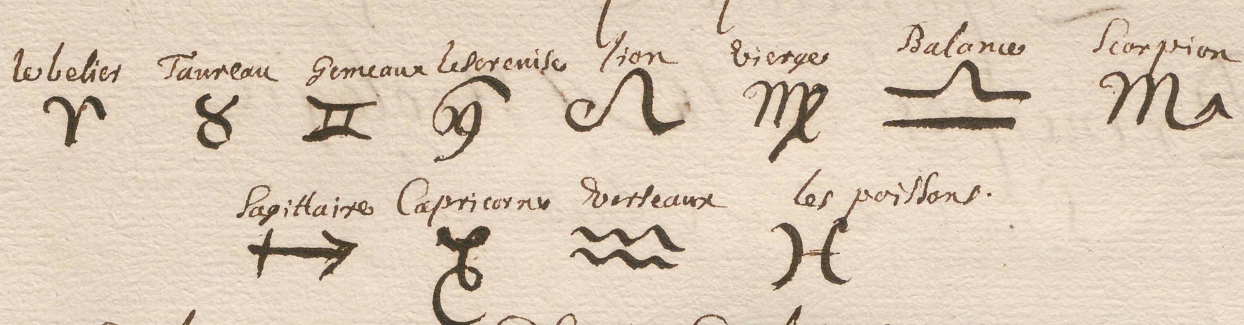 le belier Taureau Gemeaux lescrevise lion vierge Balance Scorpion
♈ ♉ ♊ ♋ ♌ ♍ ♎ ♏
Sagittaire Capricorne verseaux les poissons.
♐ ♑ ♒ ♓